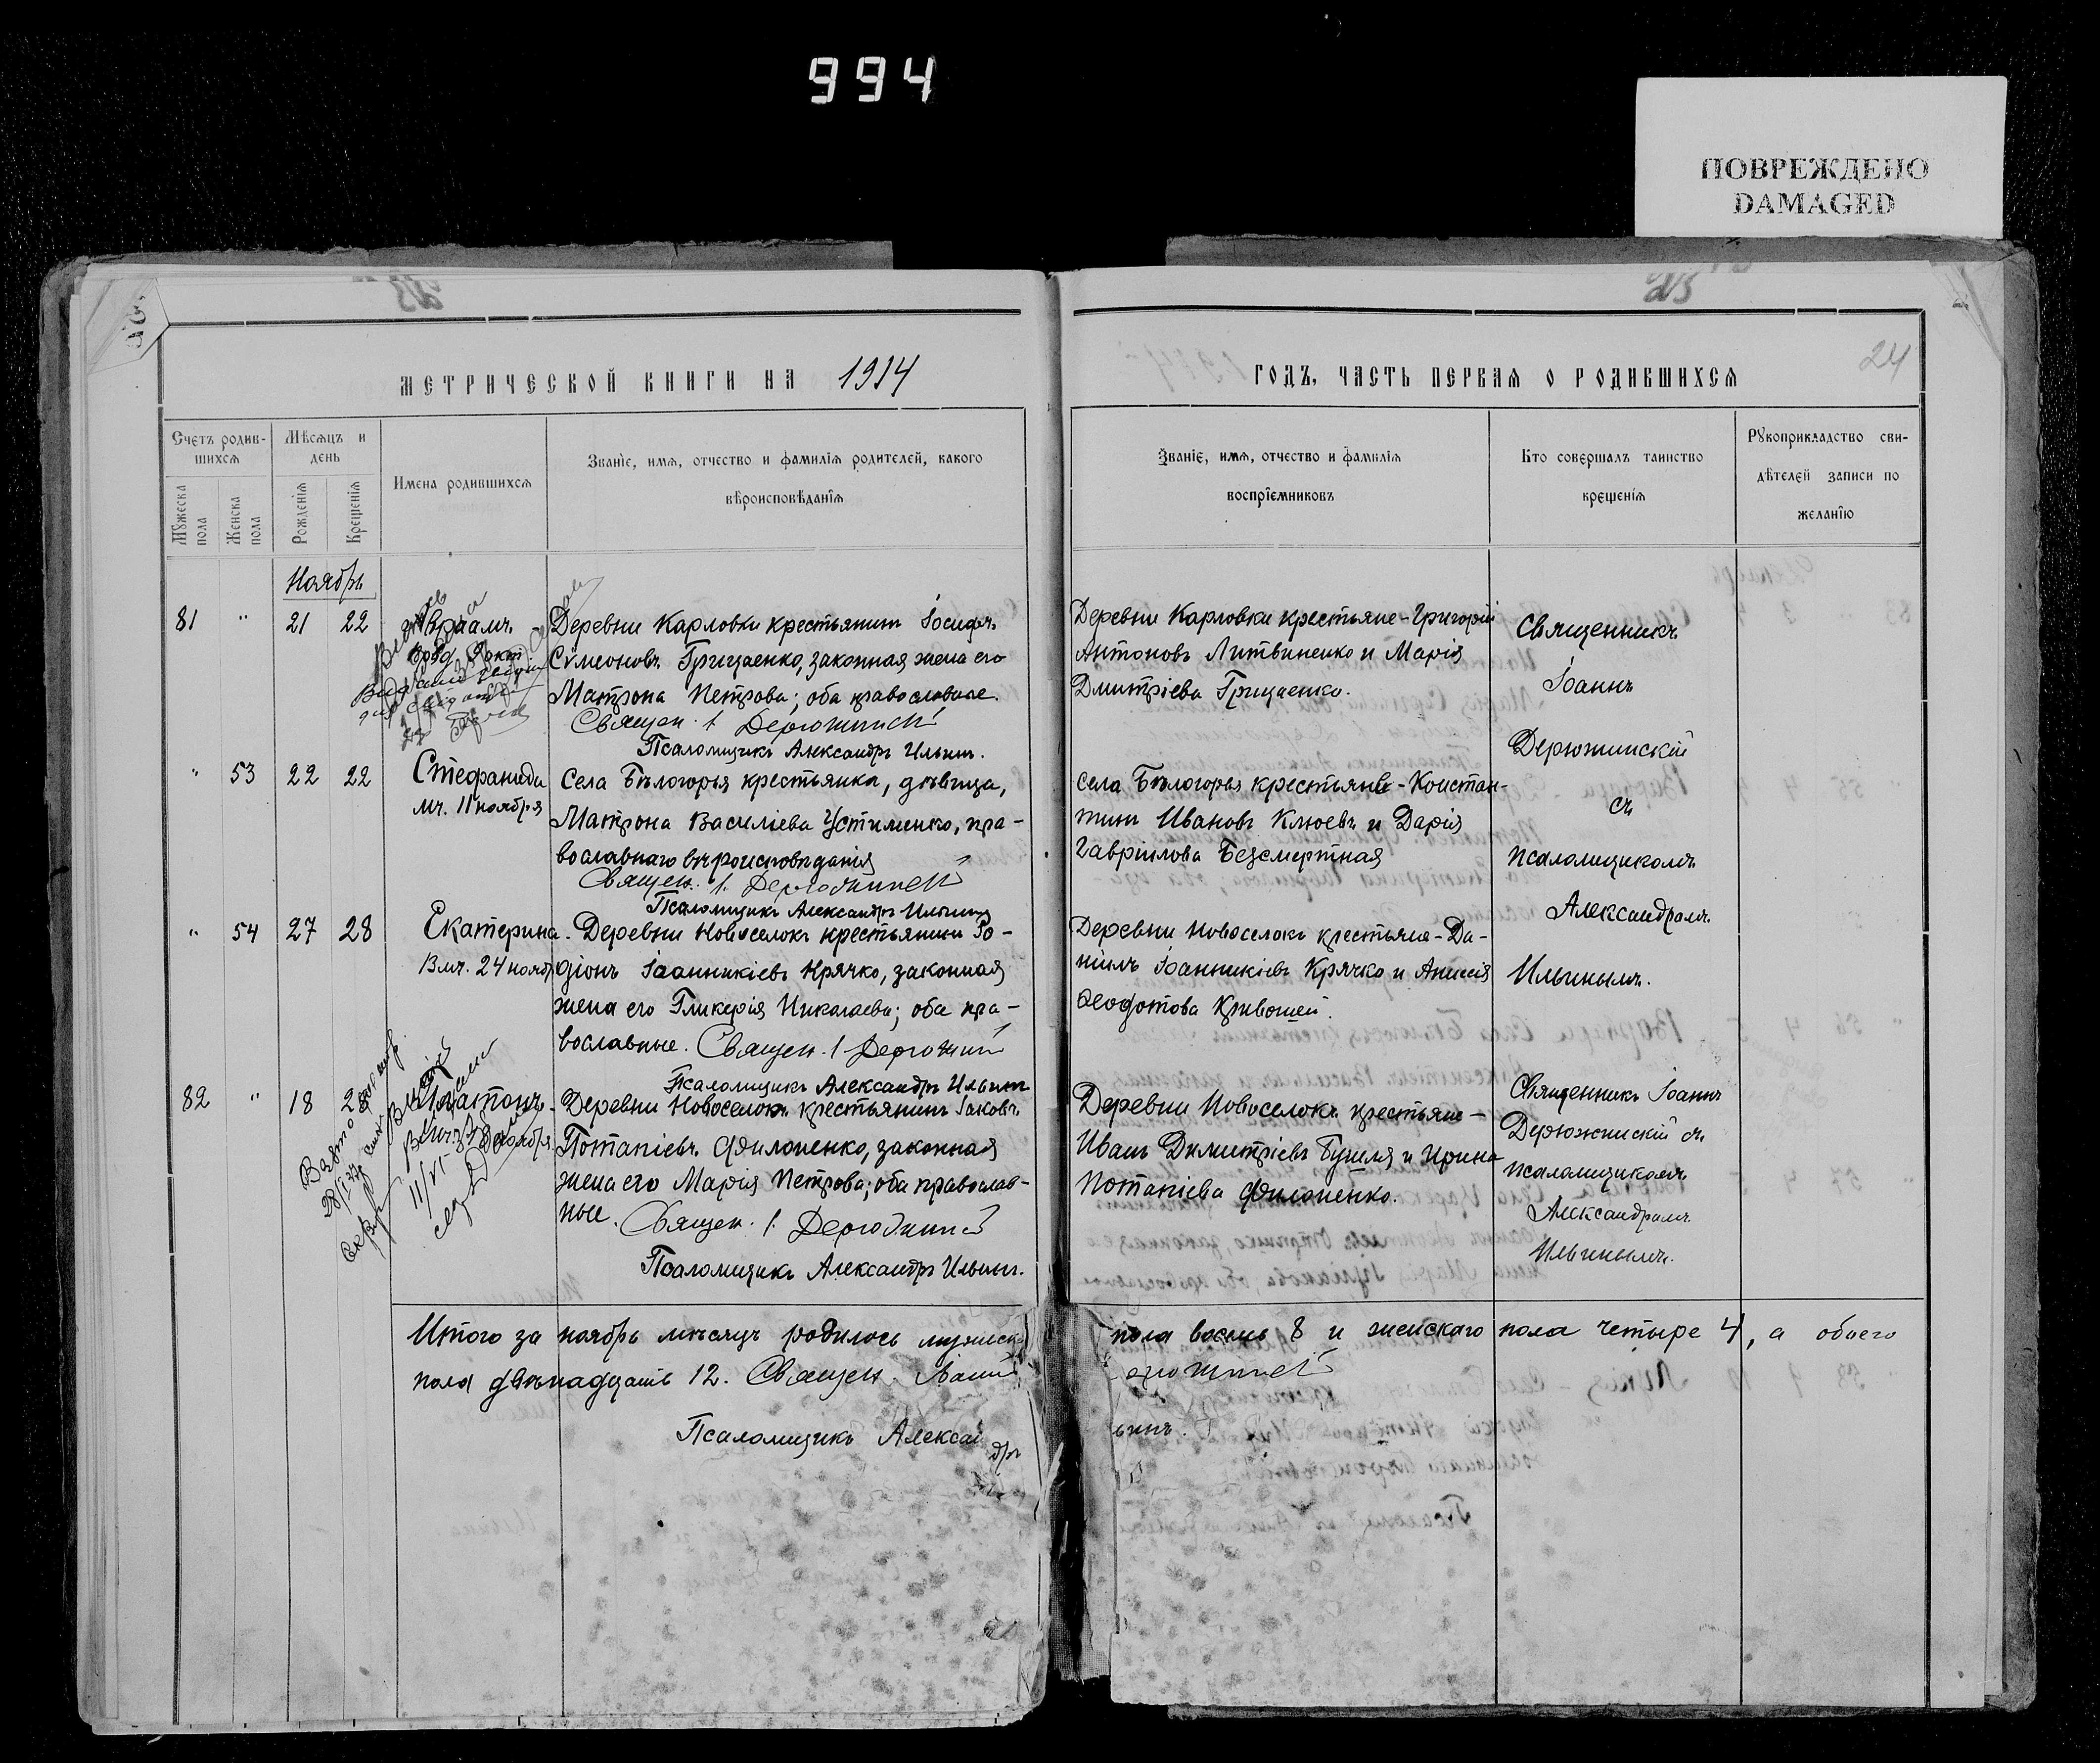 994
ПОВРЕЖДЕНО
DAMAGED
МЕТРИЧЕСКОЙ КНИГИ НА 1914
Счетъ родив-
шихся
Мѣсяцъ и
день
Мужеска
пола
Женска
пола
Рожденія
Крещенія
Имена родившихся
Званіе, имя, отчество и фамилія родителей, какого
вѣроисповѣданія
Ноябрь
81 " 21 22
Деревни Карловки крестьянинъ Іосифъ
Сѵмеоновъ Грицаенко, законная жена его
Матрона Петрова; оба православные.
Священ. І. Дерюжинскій
Псаломщикъ Александръ Ильинъ.
" 53 22 22 Стефанида
мч. 11 ноября
Села Бѣлогорья крестьянка, дѣвица,
Матрона Василіева Устименко, пра-
вославнаго вѣроисповѣданія
Священ. І. Дерюжинскій
Псаломщикъ Александръ Ильинъ
" 54 27 28 Екатерина
Вмч. 24 нояб
Деревни Новоселокъ крестьянинъ Ро-
діонъ Іоанникіевъ Крячко, законная
жена его Гликерія Николаева; оба пра-
вославные. Священ. І. Дерюжинскій
Псаломщикъ Александръ Ильинъ
82 " 18 28 Платонъ
ноября
Деревни Новоселокъ крестьянинъ Іаковъ
Потапіевъ Филоненко, законная
жена его Марія Петрова; оба православ-
ные. Священ. І. Дерюжинскій
Псаломщикъ Александръ Ильинъ.
Итого за ноябрь мѣсяцъ родилось мужеск
пола двѣнадцать 12. Священ. Іоаннъ
Псаломщикъ Алексан
дръ
23
24
ГОДЪ, ЧАСТЬ ПЕРВАЯ О РОДИВШИХСЯ
Званіе, имя, отчество и фамилія
воспріемниковъ
Кто совершалъ таинство
крещенія
Рукоприкладство сви-
дѣтелей записи по
желанію
Деревни Карловки крестьяне-Григорій
Антоновъ Литвиненко и Марія
Дмитріева Грицаенко.
Села Бѣлогорья крестьяне-Констан-
тинъ Ивановъ Клюевъ и Дарія
Гавріилова Безсмертная
Деревни Новоселокъ крестьяне-Да-
ніилъ Іоанникіевъ Крячко и Анисія
Ѳеодотова Кривошей.
Деревни Новоселокъ крестьяне-
Иванъ Димитріевъ и Ирина
Потапіева Филоненко.
Священникъ
Іоаннъ
Дерюжинскій
съ
псаломщикомъ
Александромъ
Ильинымъ.
Священникъ Іоаннъ
Дерюжинскій съ
псаломщикомъ
Александромъ
Ильинымъ.
пола восемь 8 и женскаго пола четыре 4, а обоего
ерюжинскій
ьинъ.